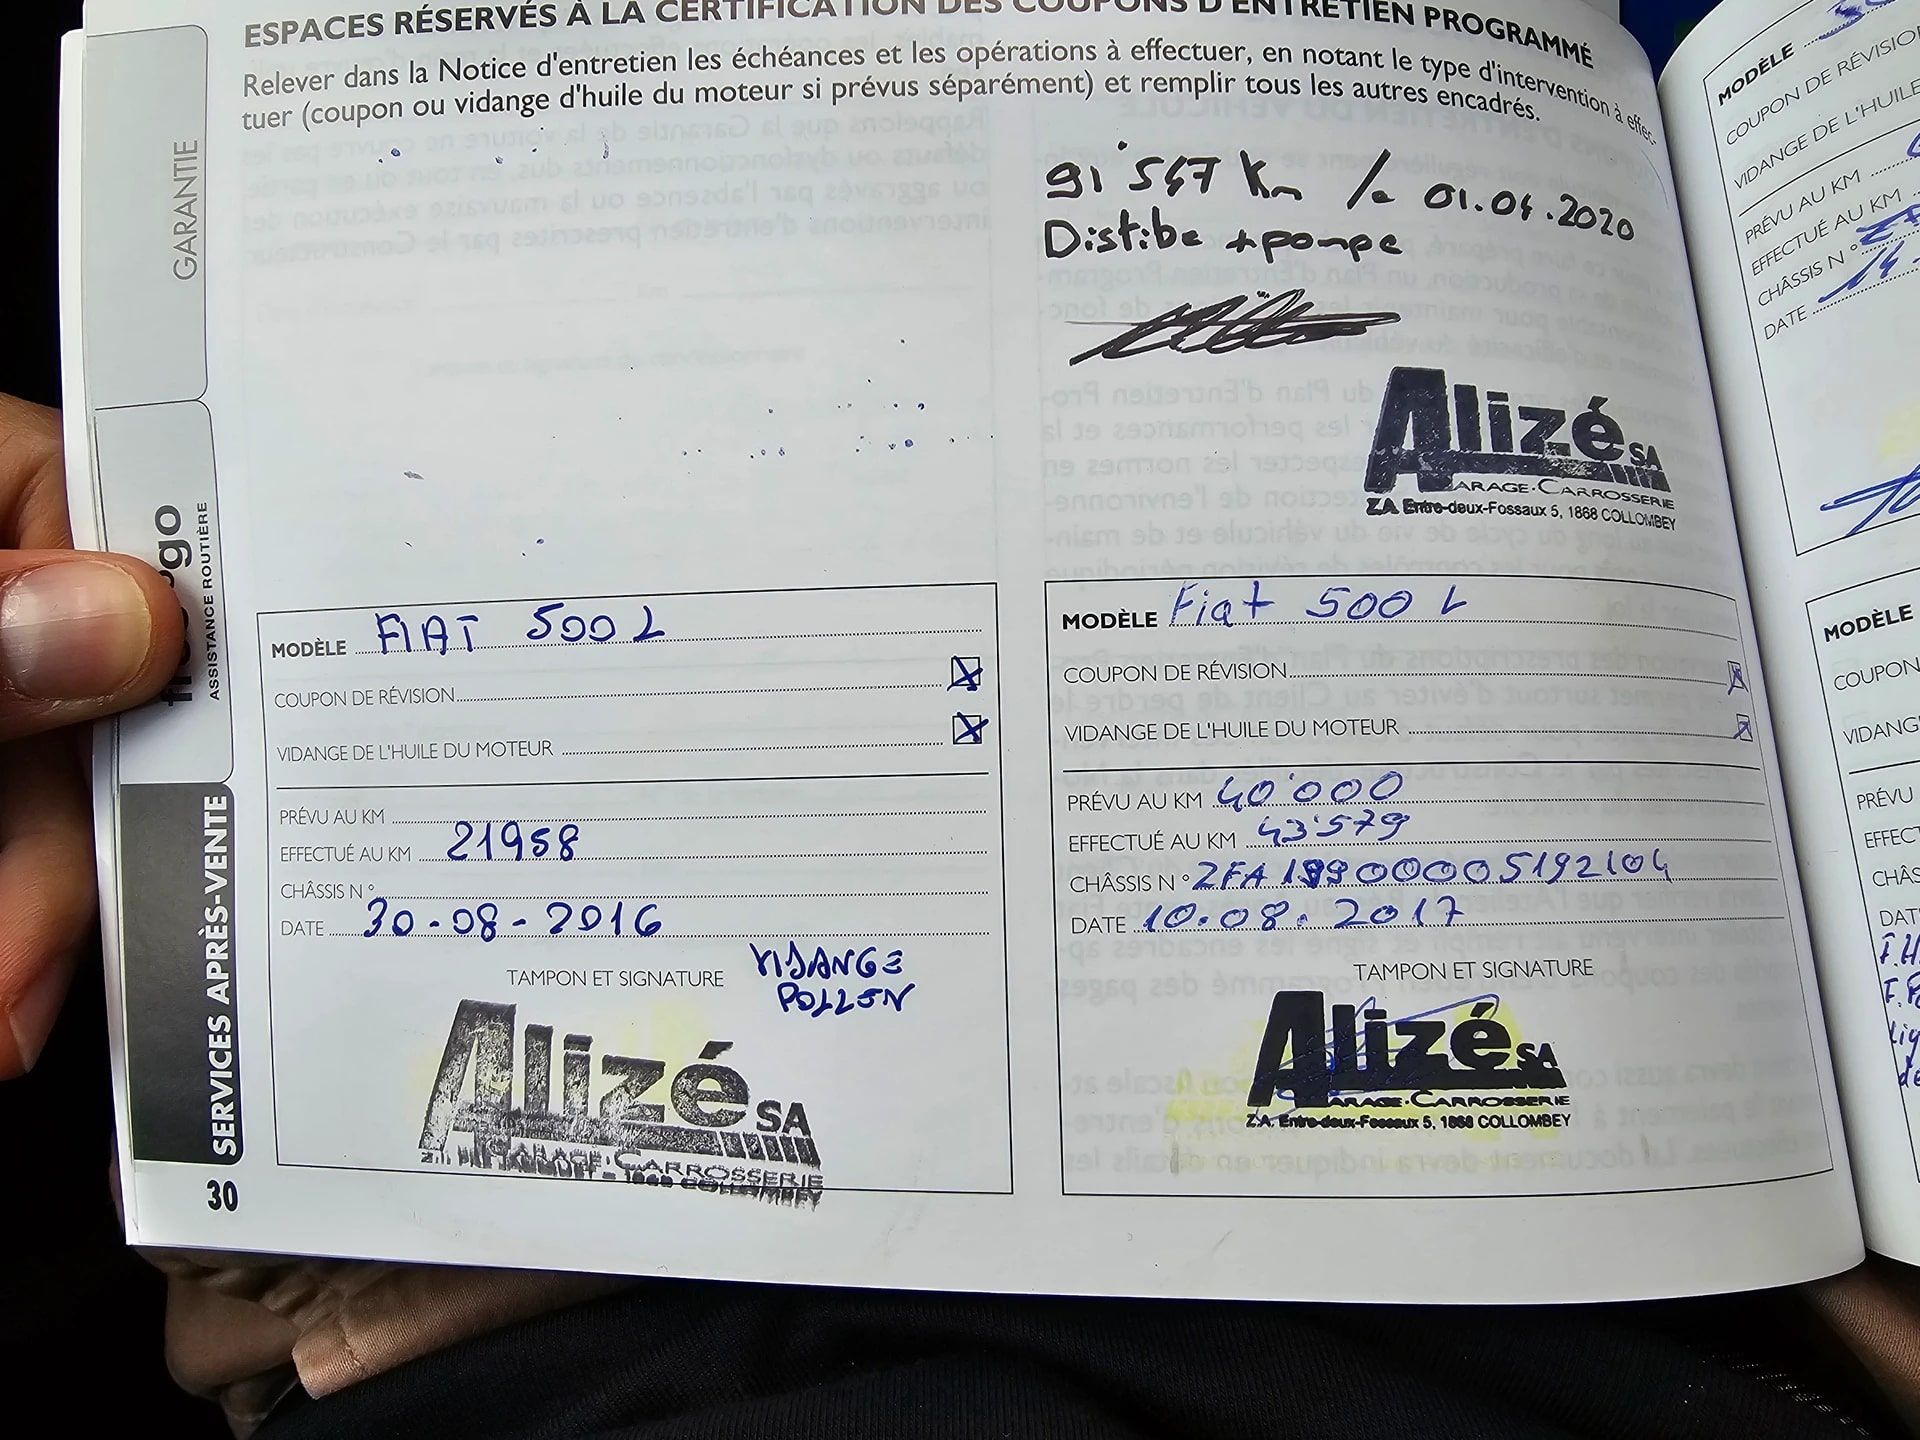 ESPACES RÉSERVÉS À LA CERTIFICATION DES COUPONS D'ENTRETIEN PROGRAMMÉ
Relever dans la Notice d'entretien les échéances et les opérations à effectuer, en notant le type d'intervention à effec-
tuer (coupon ou vidange d'huile du moteur si prévus séparément) et remplir tous les autres encadrés.
GARANTIE
go
ASSISTANCE ROUTIÈRE
SERVICES APRÈS-VENTE
30
91'547 Km le 01.04.2020
Distibe + pompe
Alizé SA
GARAGE·CARROSSERIE
Z.A. Entre-deux-Fossaux 5, 1868 COLLOMBEY
MODÈLE FIAT 500 L
COUPON DE RÉVISION
VIDANGE DE L'HUILE DU MOTEUR
PRÉVU AU KM
EFFECTUÉ AU KM 21958
CHÂSSIS N°
DATE 30-08-2016
TAMPON ET SIGNATURE
VIDANGE
POLLEN
Alizé SA
GARAGE·CARROSSERIE
1868 COLLOMBEY
MODÈLE Fiat 500 L
COUPON DE RÉVISION
VIDANGE DE L'HUILE DU MOTEUR
PRÉVU AU KM 40'000
EFFECTUÉ AU KM 43'579
CHÂSSIS N° ZFA19900005192104
DATE 10.08.2017
TAMPON ET SIGNATURE
Alizé SA
GARAGE·CARROSSERIE
Z.A. Entre-deux-Fossaux 5, 1868 COLLOMBEY
MODÈLE
COUPON DE RÉVISIO
VIDANGE DE L'HUILE
PRÉVU AU KM
EFFECTUÉ AU KM
CHÂSSIS N°
DATE
MODÈLE
COUPON
VIDANG
PRÉVU
EFFECT
CHÂS
DAT